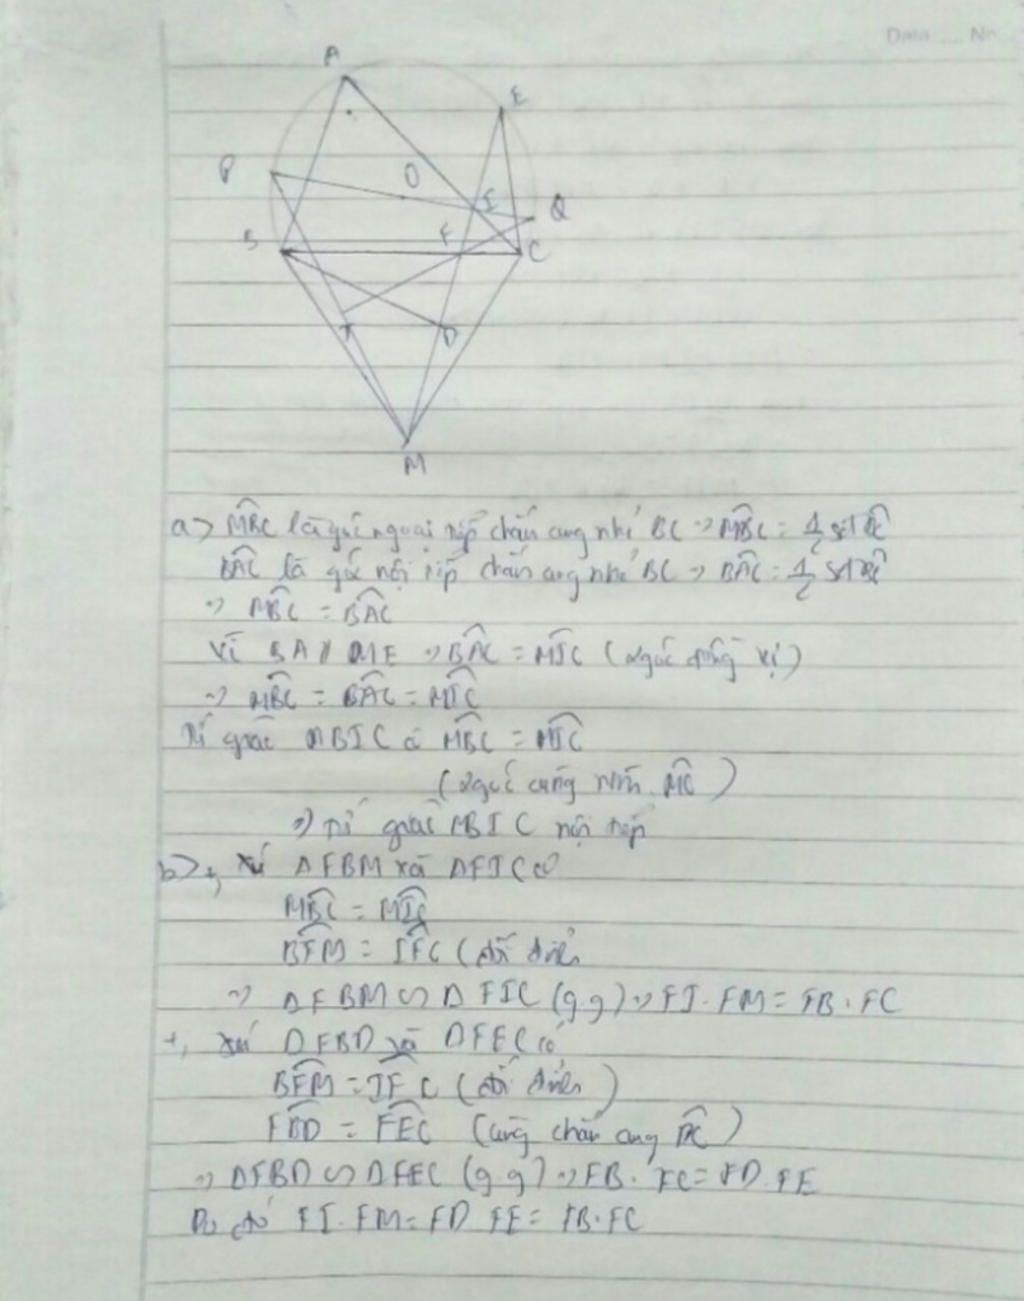 Date ..... No
A
E
P
O
I
Q
B
F
C
T
D
M
a) MBC là góc ngoại tiếp chắn cung nhỏ BC → MBC = 1/2 sđ BC
BAC là góc nội tiếp chắn cung nhỏ BC → BAC = 1/2 sđ BC
→ MBC = BAC
Vì BA // ME → BAC = MIC (2 góc đồng vị)
→ MBC = BAC = MIC
Tứ giác MBIC có MBC = MIC
(2 góc cùng nhìn MC)
→ Tứ giác MBIC nội tiếp
b) +, Xét ΔFBM và ΔFIC có
MBC = MIC
BFM = IFC (đối đỉnh
→ ΔFBM ∽ ΔFIC (g.g) → FI.FM = FB.FC
+, Xét ΔFBD và ΔFEC có
BFM = IFC (đối đỉnh)
FBD = FEC (cùng chắn cung DC)
→ ΔFBD ∽ ΔFEC (g.g) → FB.FC = FD.FE
Do đó FI.FM = FD.FE = FB.FC